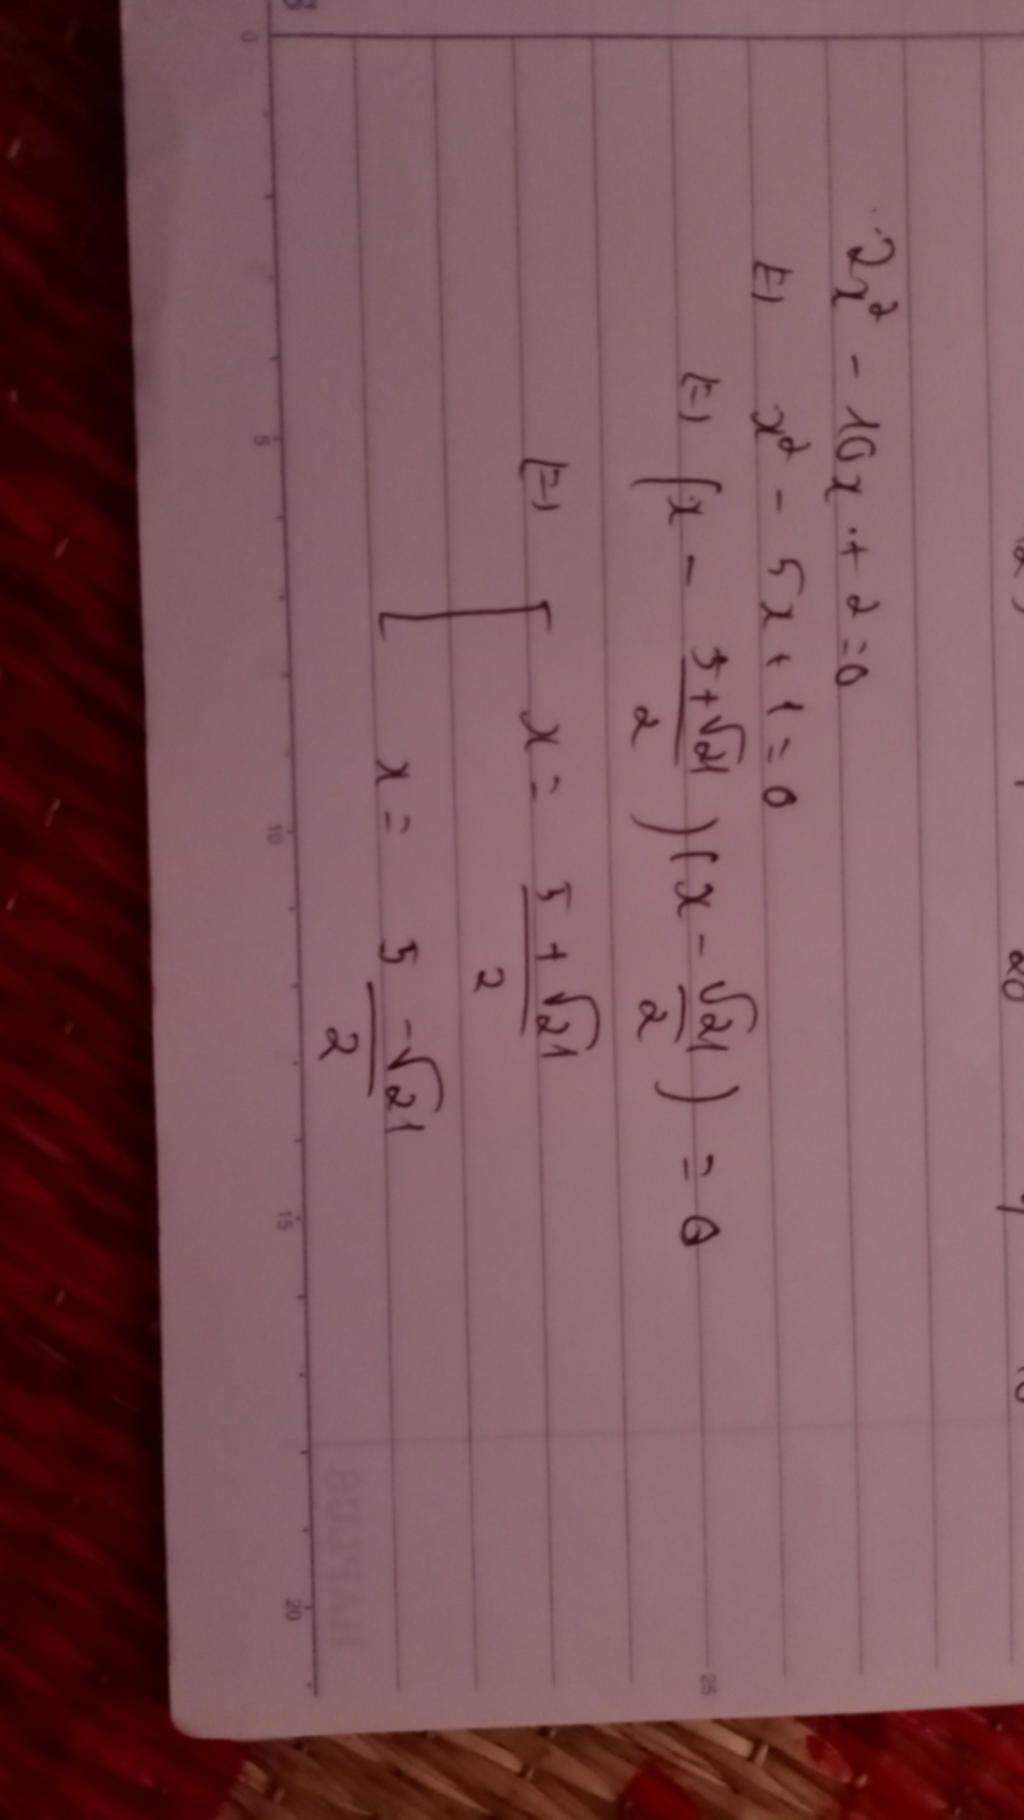 2x² - 10x + 2 = 0
⇔ x² - 5x + 1 = 0
⇔ (x - (5 + √21)/2)(x - √21/2) = 0
⇔ [ x = (5 + √21)/2
x = (5 - √21)/2
0 5 10 15 20
25